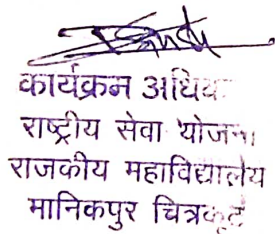 कार्यक्रम अधि
राष्ट्रीय सेवा योजना
राजकीय महाविद्यालय
मानिकपुर चित्रकूट